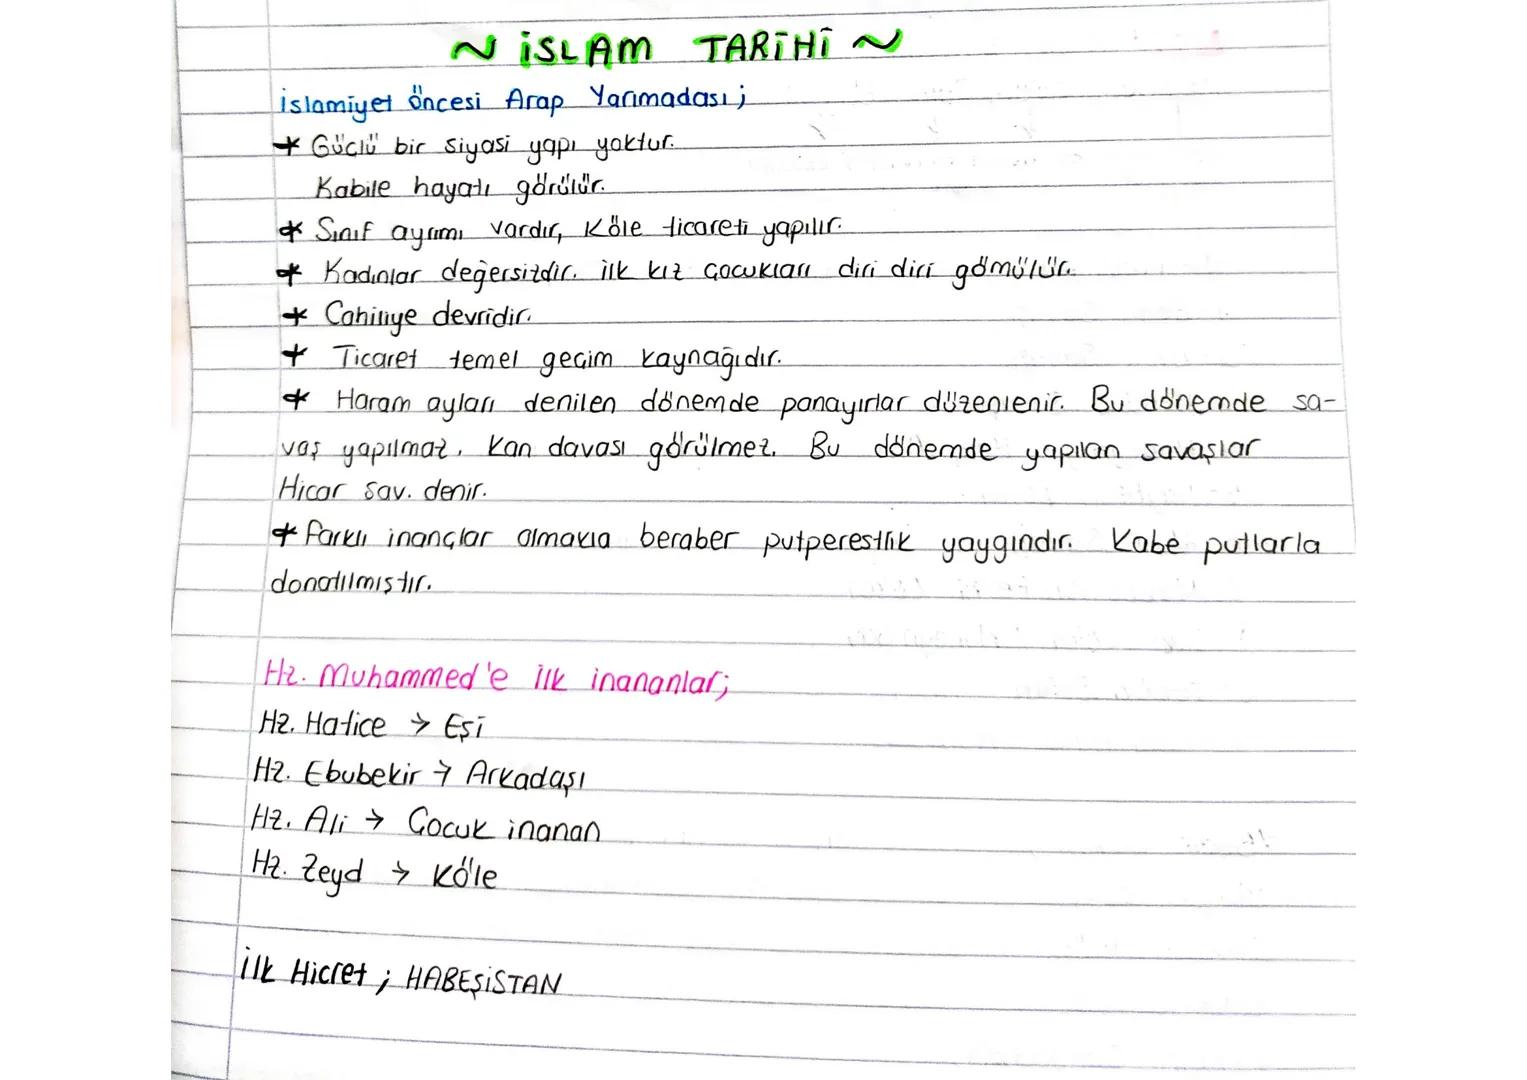 ~ İSLAM TARİHİ ~
İslamiyet Öncesi Arap Yarımadası;
* Güçlü bir siyasi yapı yoktur.
Kabile hayatı görülür.
* Sınıf ayrımı vardır, Köle ticareti yapılır.
* Kadınlar değersizdir. İlk kız çocukları diri diri gömülür.
* Cahiliye devridir.
* Ticaret temel geçim kaynağıdır.
* Haram ayları denilen dönemde panayırlar düzenlenir. Bu dönemde sa-
vaş yapılmaz. Kan davası görülmez. Bu dönemde yapılan savaşlar
Hicar sav. denir.
* Farklı inançlar olmakla beraber putperestlik yaygındır. Kabe putlarla
donatılmıştır.
Hz. Muhammed'e ilk inananlar;
Hz. Hatice → Eşi
Hz. Ebubekir → Arkadaşı
Hz. Ali → Çocuk inanan
Hz. Zeyd → Köle
İlk Hicret ; HABEŞİSTAN